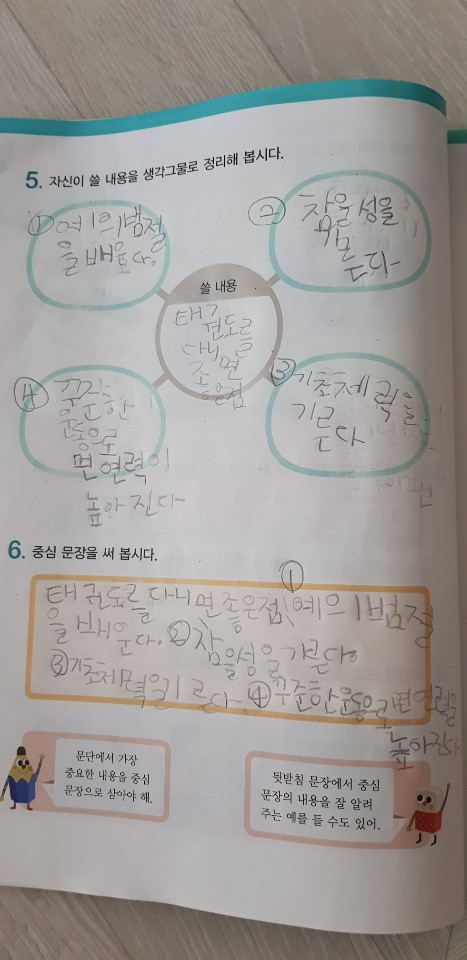 5. 자신이 쓸 내용을 생각그물로 정리해 봅시다.
① 예의범절
을 배운다.
② 참을성을
기르
는다
쓸 내용
태권도를
다니면
좋은점
③ 기초체력을
기른
다
④ 꾸준한
운동으로
면연력이
높아진다
6. 중심 문장을 써 봅시다.
태권도를 다니면 좋은점 ① 예의범절
을 배운다. ② 참을성을 기른다.
③ 기초체력을 기른다. ④ 꾸준한운동으로 면연력을
높아진다.
문단에서 가장
중요한 내용을 중심
문장으로 삼아야 해.
뒷받침 문장에서 중심
문장의 내용을 잘 알려
주는 예를 들 수도 있어.